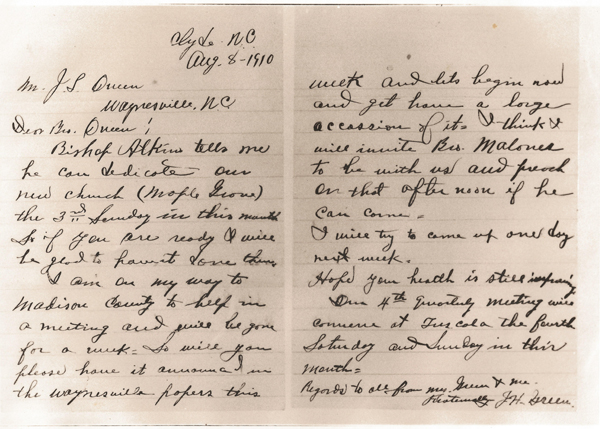 Clyde. N.C
Aug. 8-1910
Mr. J. S. Queen
Waynesville, N.C.
Dear Bro. Queen!
Bishop Atkins tells me
he can dedicate our
new church (Maple Grove)
the 3rd Sunday in this month
So if you are ready I will
be glad to have it done then.
I am on my way to
Madison County to help in
a meeting and will be gone
for a week= So will you
please have it announced in
the Waynesville papers this
week and lets begin now
and get have a large
accassion of it= I think I
will invite Bro. Malones
to be with us and preach
on that after noon if he
can come=
I will try to come up one day
next week.
Hope your health is still improving
Our 4th Quarterly meeting will
convene at Tuscola the fourth
Saturday and Sunday in this
month=
Regards to all from Mrs. Green & me.
Fraternally J.H. Green.